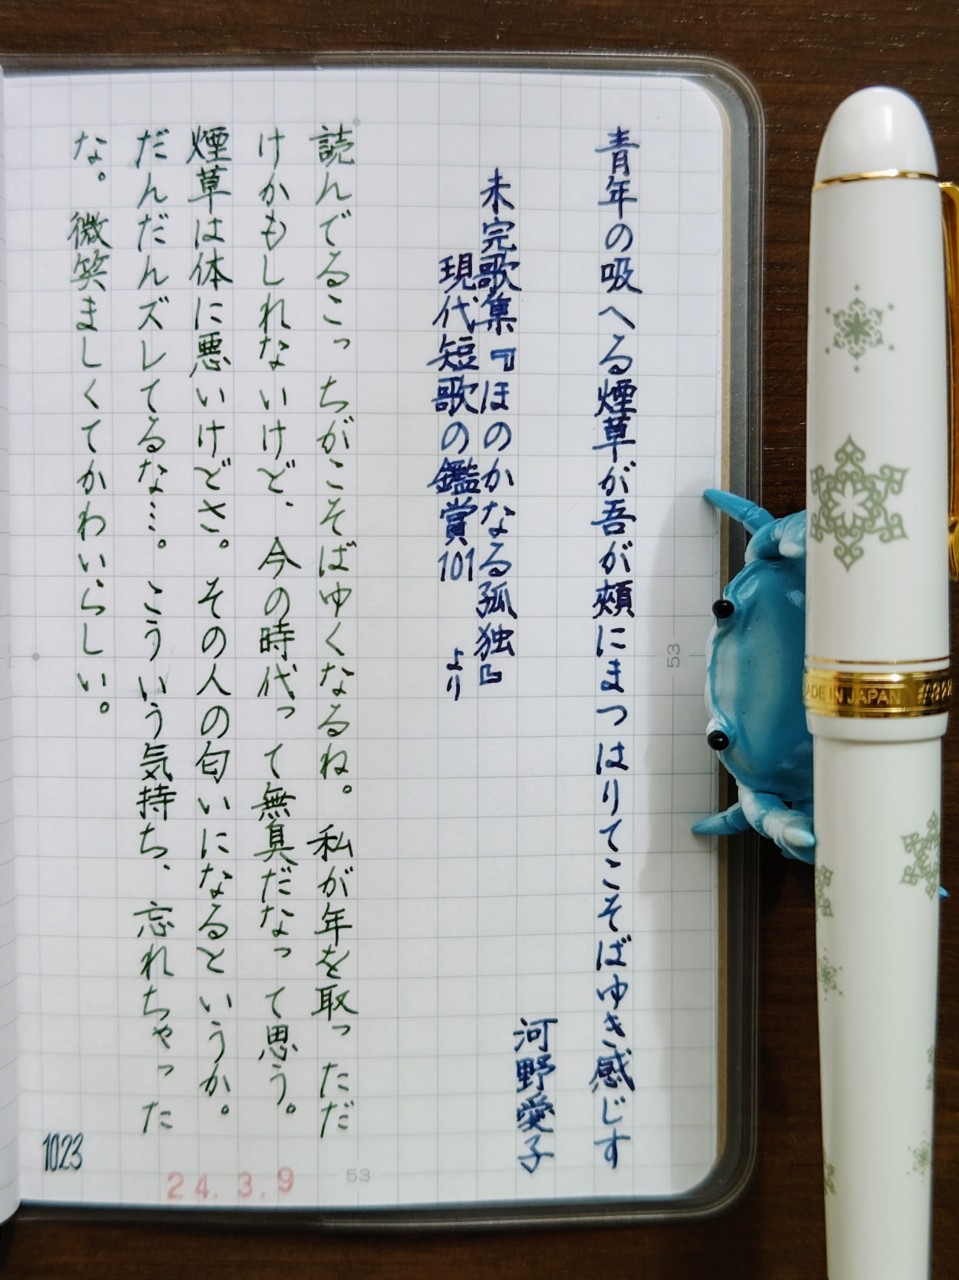 青年の吸へる煙草が吾が頰にまつはりてこそばゆき感じす
河野愛子
未完歌集『ほのかなる孤独』
現代短歌の鑑賞101 より
読んでるこっちがこそばゆくなるね。私が年を取っただ
けかもしれないけど、今の時代って無臭だなって思う。
煙草は体に悪いけどさ。その人の匂いになるというか。
だんだんズレてるな…。こういう気持ち、忘れちゃった
な。微笑ましくてかわいらしい。
1023
24.3.9
53
53
MADE IN JAPAN